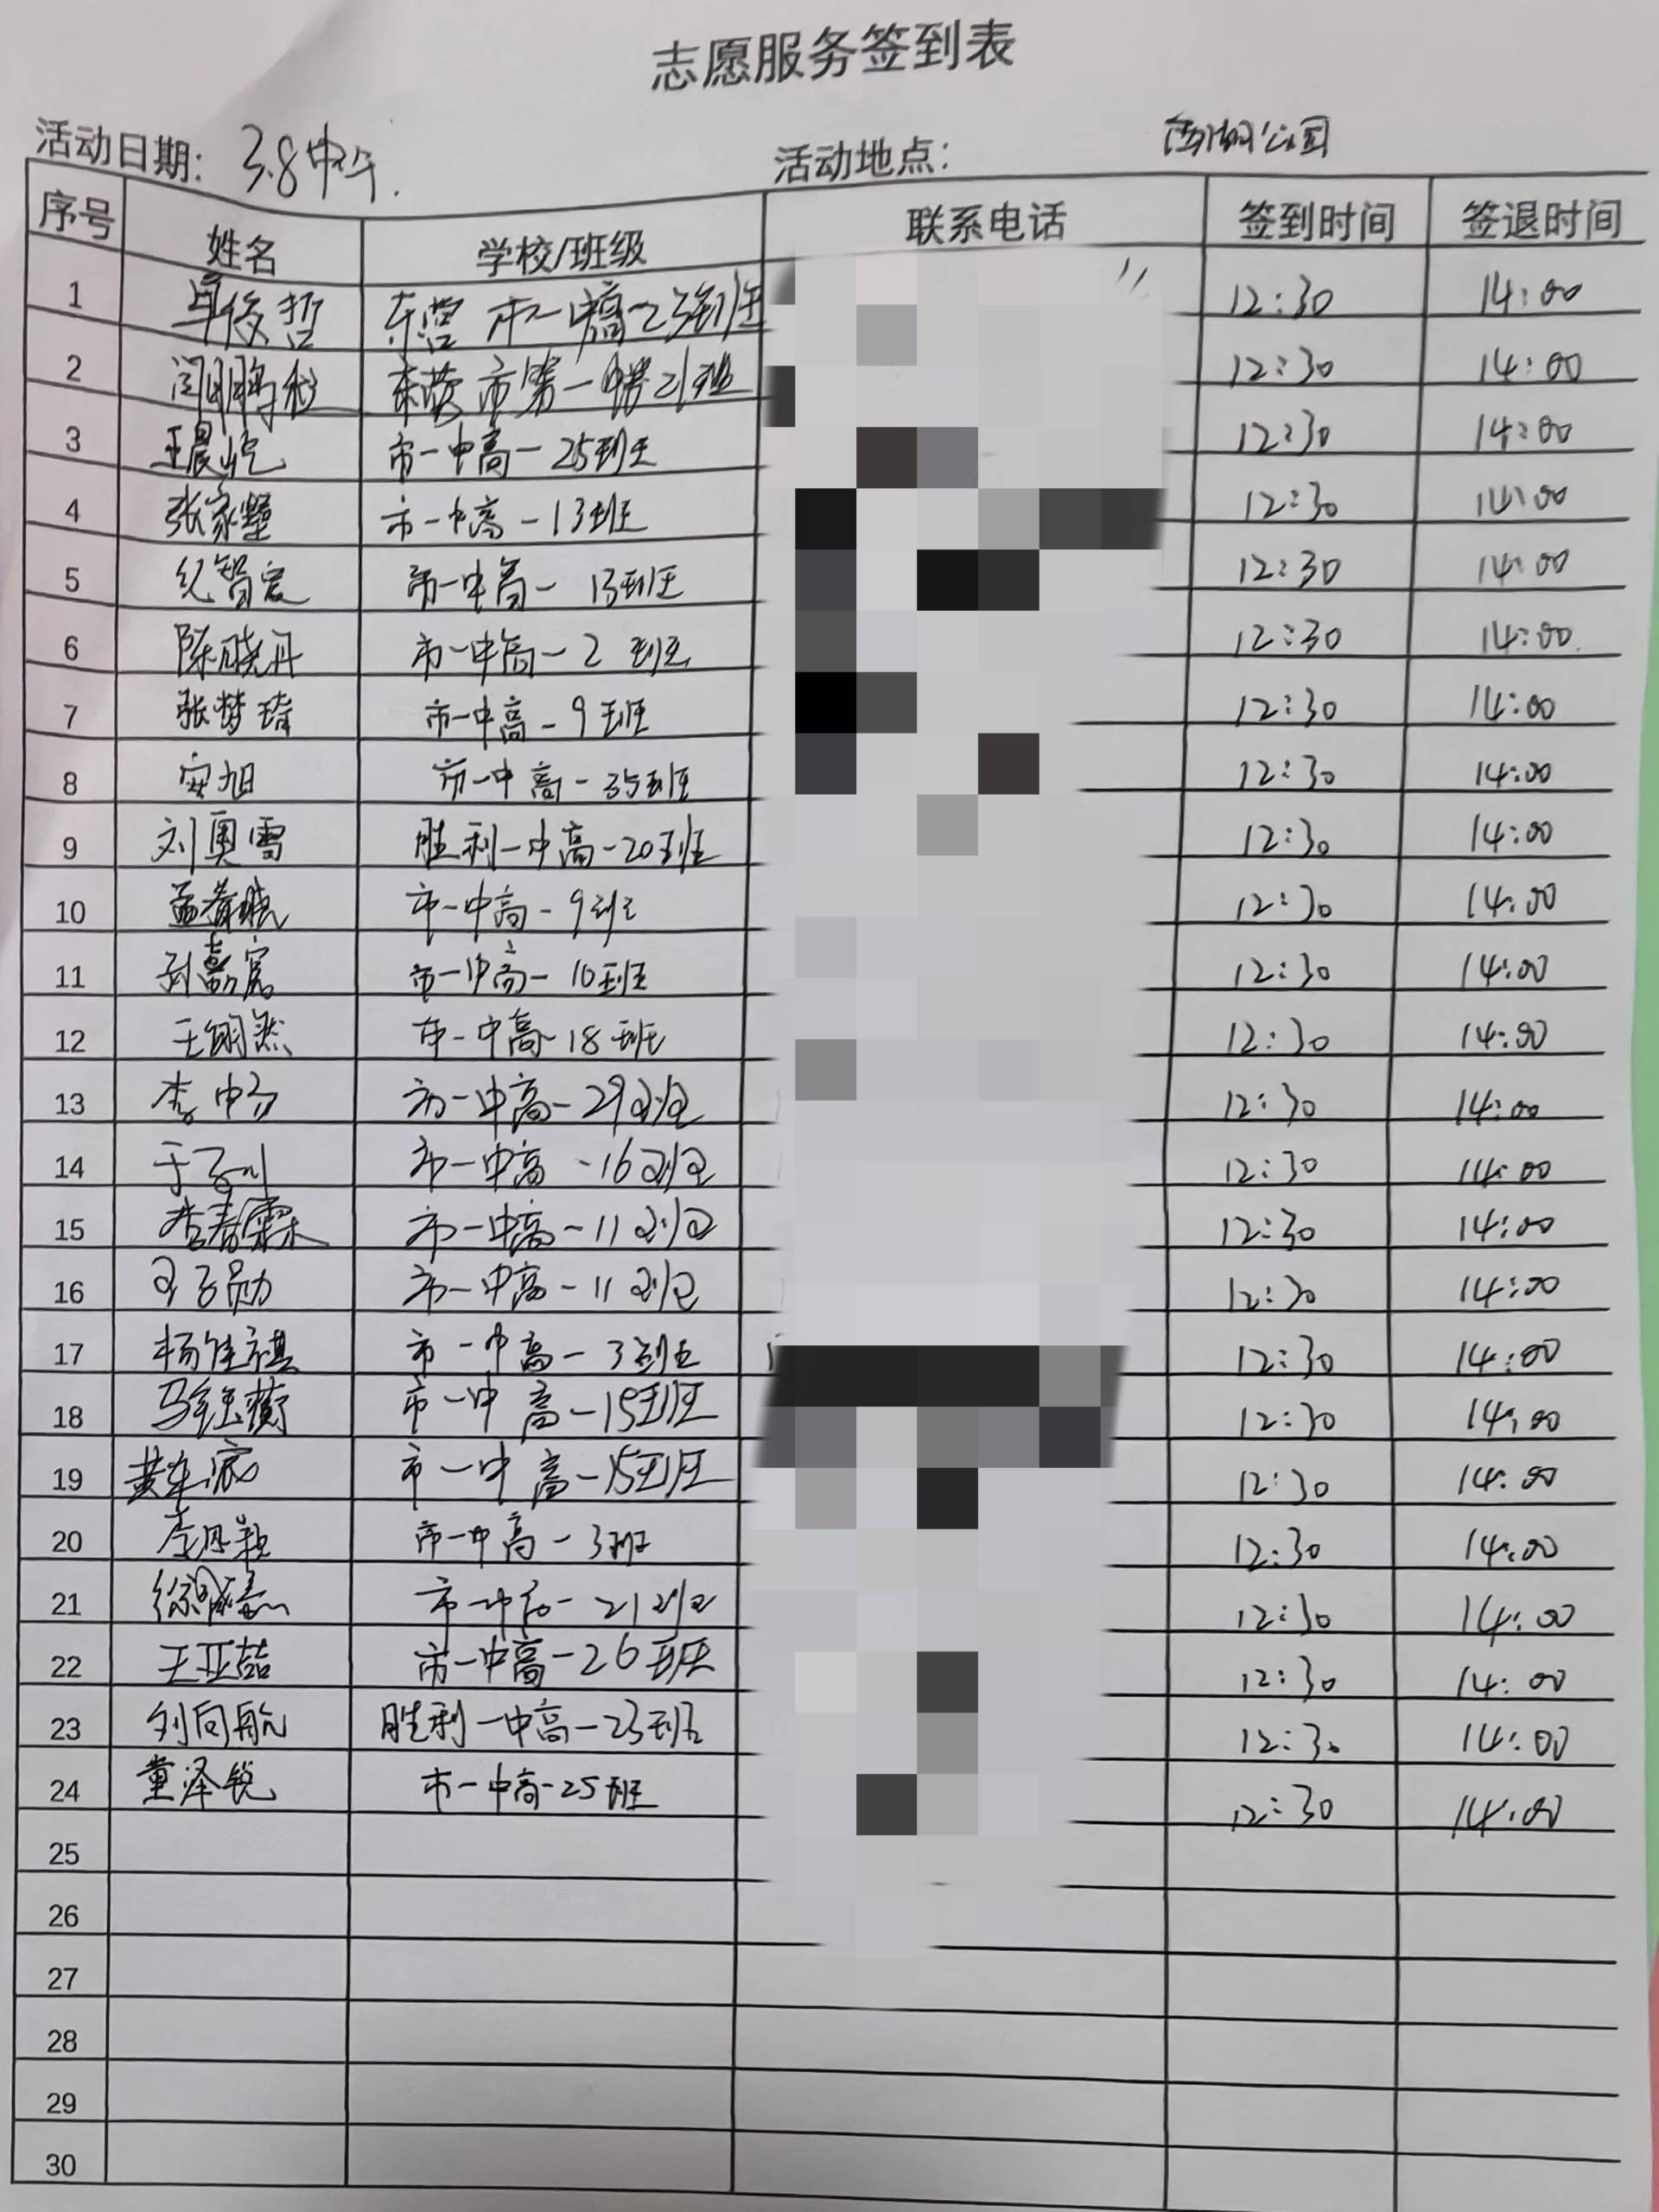 志愿服务签到表
活动日期: 3.8中午. 活动地点: 公园
序号 姓名 学校/班级 联系电话 签到时间 签退时间
1 卓俊哲 东营市一中高一23班 12:30 14:00
2 东营市第一中学21班 12:30 14:00
3 王晨屹 市一中高一25班 12:30 14:00
4 张家 市一中高一13班 12:30 14:00
5 纪智宸 市一中高一13班 12:30 14:00
6 陈晓丹 市一中高一2班 12:30 14:00
7 张梦琦 市一中高一9班 12:30 14:00
8 安旭 市一中高一35班 12:30 14:00
9 刘奥雪 胜利一中高一20班 12:30 14:00
10 孟 市一中高一9班 12:30 14:00
11 孙嘉宸 市一中高一10班 12:30 14:00
12 王翊然 市一中高一18班 12:30 14:00
13 李 市一中高一29班 12:30 14:00
14 于子 市一中高一16班 12:30 14:00
15 春霖 市一中高一11班 12:30 14:00
16 子勋 市一中高一11班 12:30 14:00
17 杨佳祺 市一中高一3班 12:30 14:00
18 马 市一中高一15班 12:30 14:00
19 黄 市一中高一15班 12:30 14:00
20 李丹 市一中高一3班 12:30 14:00
21 徐 市一中高一21班 12:30 14:00
22 王亚喆 市一中高一26班 12:30 14:00
23 刘向航 胜利一中高一23班 12:30 14:00
24 董泽锐 市一中高一25班 12:30 14:00
25
26
27
28
29
30